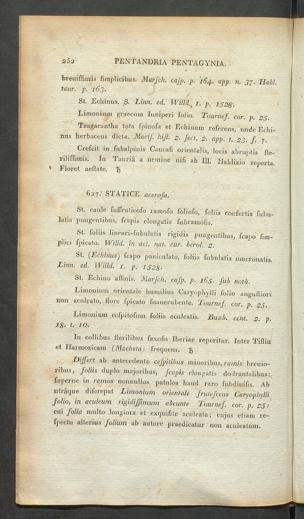 252 PENTANDRIA PENTAGYNIA.
breuissimis simplicibus. Marsch. casp. p. 164. app. n. 37. Habl.
taur. p. 163.
St. Echinus. β. Linn. ed. Willd. 1. p. 1528.
Limonium graecum Iuniperi folio. Tournef. cor. p. 25.
Tragacantha tota spinosa et Echinum referens, unde Echi-
nus herbaceus dicta. Moris. hist. 2. sect. 2. app. t. 23. f. 7.
Crescit in subalpinis Caucasi orientalis, locis abruptis ste-
rilissimis. In Tauriâ a nemine nisi ab Ill. Hablizio reperta.
Floret aestate. ♄
627. STATICE acerosa.
St. caule suffruticoso ramoso folioso, foliis confertis subu-
latis pungentibus, scapis elongatis subramosis.
St. foliis lineari-subulatis rigidis pungentibus, scapo sim-
plici spicato. Willd. in act. nat. cur. berol. 2.
St. (Echinus) scapo paniculato, foliis subulatis mucronatis.
Linn. ed. Willd. 1. p. 1528.
St. Echino affinis. Marsch. casp. p. 165. sub notâ.
Limonium orientale humilius Caryophylli folio angustiori
non aculeato, flore spicato suauerubente. Tournef. cor. p. 25.
Limonium cespitosum foliis aculeatis. Buxb. cent. 2. p.
18. t. 10.
In collibus sterilibus saxosis Iberiae reperitur. Inter Tiflin
et Harmozicam (Mzcheta) frequens. ♄
Differt ab antecedente cespitibus minoribus, ramis breuio-
ribus, foliis duplo majoribus, scapis elongatis dodrantalibus,
superne in ramos nonnullos patulos haud raro subdiuisis. Ab
utrâque discrepat Limonium orientale frutescens Caryophylli
folio, in aculeum rigidissimum abeunte Tournef. cor. p. 25:
cui folia multo longiora et exquisite aculeata; cujus etiam re-
spectu alterius folium ab autore praedicatur non aculeatum.